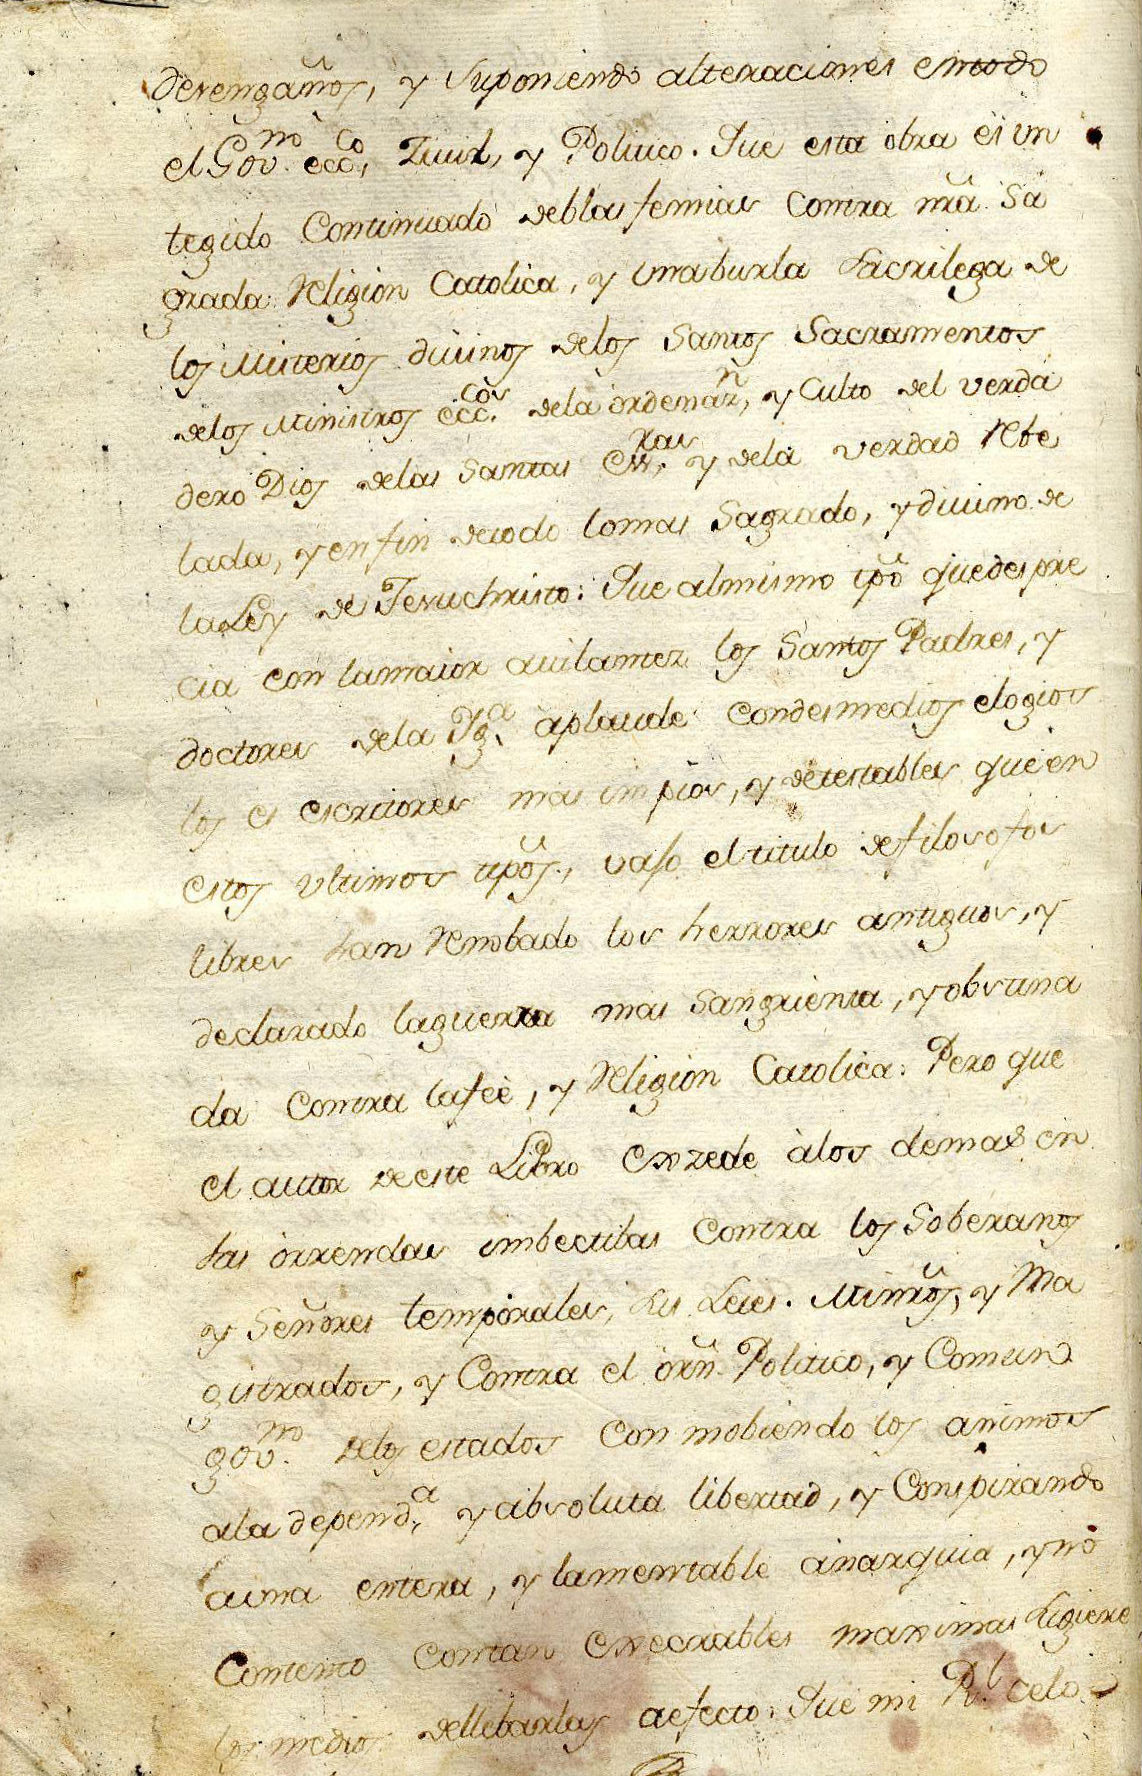 desengaños, y suponiendo alteraciones entodo
el Gov.no ecc.co, Zivil, y Politico. Que esta obra es un
tegido Continuado deblasfemias Contra nrã Sa
grada Religion Catolica, y unaburla Sacrilega de
los Misterios divinos delos Santos Sacramentos
delos Ministros ecc.cos dela ordenaz.n, y Culto del verda
dero Dios delas Santas Ess.ras y dela verdad Rebe
lada, y en fin detodo lomas Sagrado, y divino de
la Ley de Jesuchristo: Que almismo tpõ quedespre
cia con lamaior avilantez los Santos Padres, y
doctores dela Yg.a aplaude condesmedios elogios
los es escritores mas impios, y detestables que en
estos ultimos tpõs., vajo el titulo defilosofos
libres han Renobado los herrores antiguos, y
declarado laguerra mas Sangrienta, y obstina
da contra lafeè, y Religion Catolica: Pero que
el autor deeste Libro Exzede àlos demas en
las orrendas imbectibas Contra los Soberanos
y Señores temporales, sus Leies. Minrõs, y Ma
gistrados, y Contra el orñ. Politico, y Comun
gov.no delos estados Conmobiendo los animos
ala depend.a y absoluta libertad, y Conspirando
auna entera, y lamentable anarquia, y nò
Contento Contan Execrables maximas sugiere
los medios dellebarlas aefecto: Que mi R.l celo